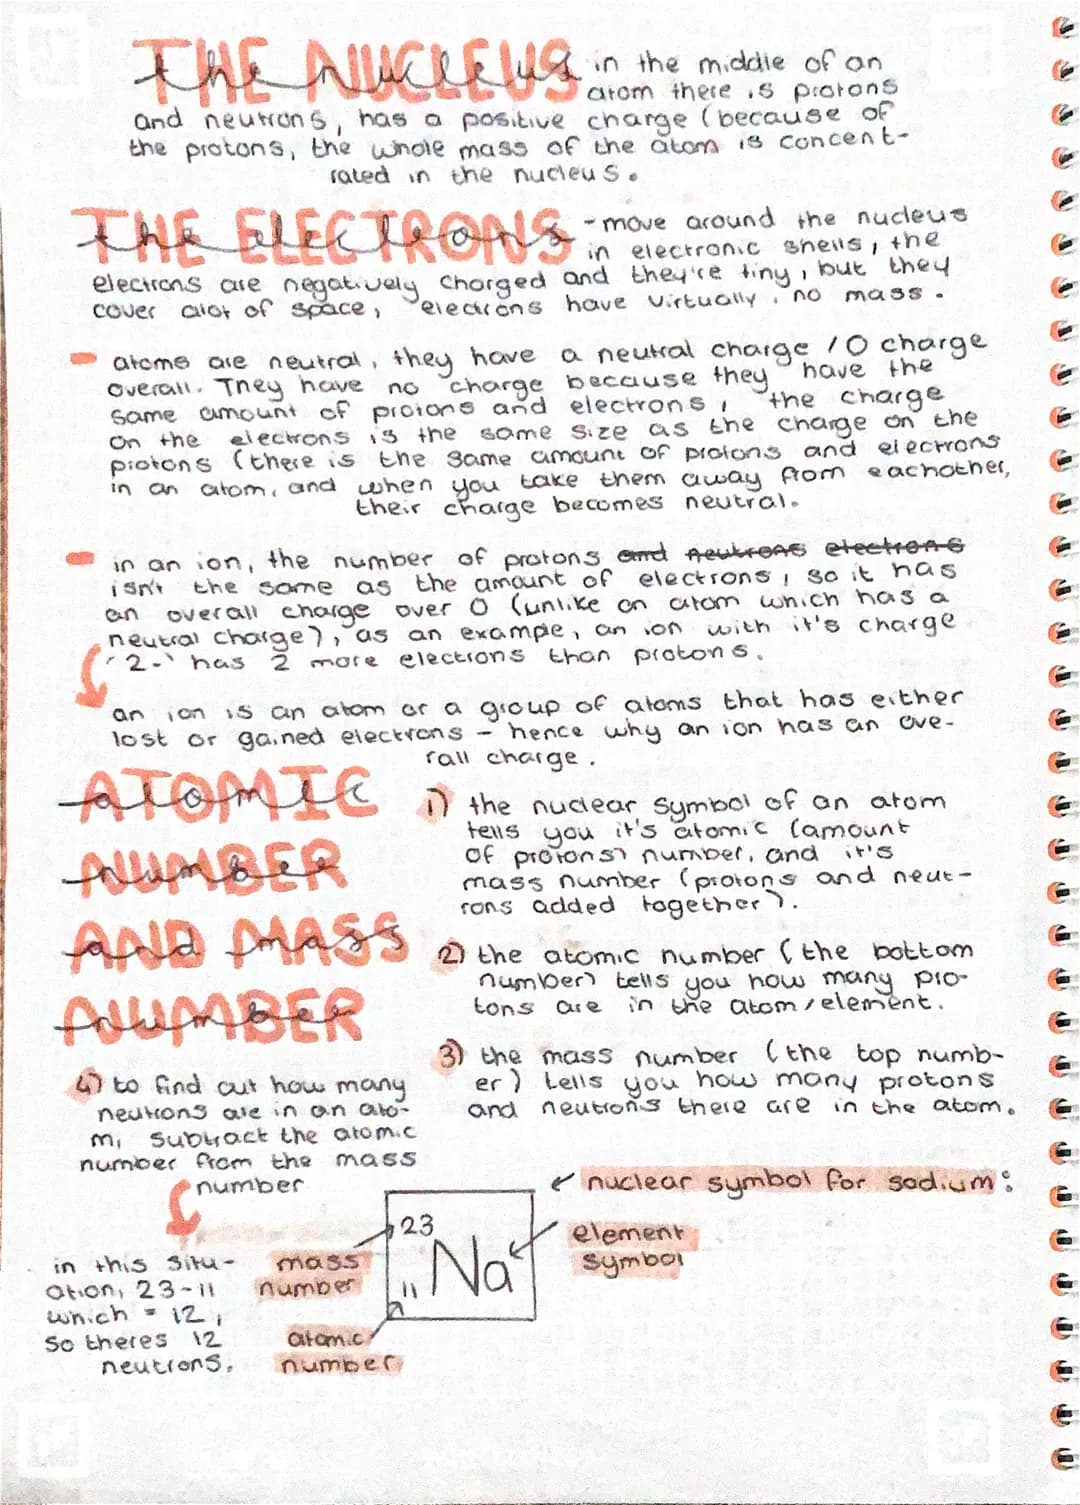 THE NUCLEUS
the nucleus
in the middle of an
atom there is protons
and neutrons, has a positive charge (because of
the protons, the whole mass of the atom is concent-
rated in the nucleus.
THE ELECTRONS
the electrons
- move around the nucleus
in electronic shells, the
electrons are negatively charged and they're tiny, but they
cover alot of space, electrons have virtually no mass.
atoms are neutral, they have a neutral charge / 0 charge
overall. They have no charge because they have the
same amount of protons and electrons, the charge
on the electrons is the same size as the charge on the
protons (there is the same amount of protons and electrons
in an atom, and when you take them away from eachother,
their charge becomes neutral.
in an ion, the number of protons and neutrons electrons
isn't the same as the amount of electrons, so it has
an overall charge over 0 (unlike an atom which has a
neutral charge), as an example, an ion with it's charge
'2-' has 2 more electrons than protons.
an ion is an atom or a group of atoms that has either
lost or gained electrons - hence why an ion has an ove-
rall charge.
ATOMIC
atomic
NUMBER
number
AND MASS
and mass
NUMBER
number
1) the nuclear symbol of an atom
tells you it's atomic (amount
of protons) number, and it's
mass number (protons and neut-
rons added together).
2) the atomic number (the bottom
number) tells you how many pro-
tons are in the atom/element.
3) the mass number (the top numb-
er) tells you how many protons
and neutrons there are in the atom.
4) to find out how many
neutrons are in an ato-
m, subtract the atomic
number from the mass
number
in this situ-
ation, 23-11
which = 12,
so theres 12
neutrons.
nuclear symbol for sodium:
23
Na
11
element
symbol
mass
number
atomic
number